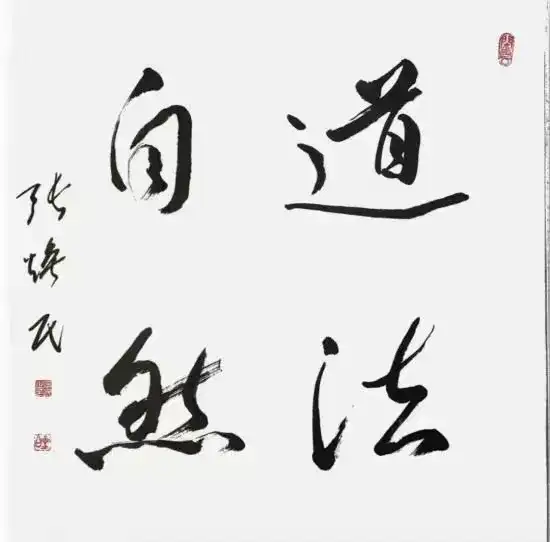 道法
自然
张 民